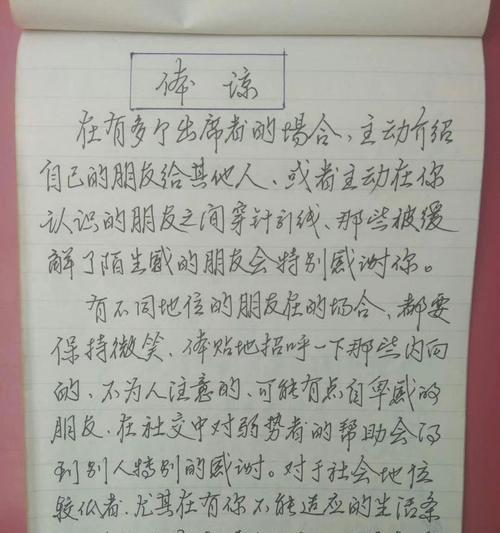 体谅
在有多个出席者的場合、主动介绍
自己的朋友给其他人、或者主动在你
认识的朋友之间穿针引线、那些被缓
解了陌生感的朋友会特别感谢你。
有不同地位的朋友在的场合、都要
保持微笑、体贴地招呼一下那些内向
的、不为人注意的、可能有点自卑感的
朋友、在社交中对弱势者的帮助会得
到别人特别的感谢。对于社会地位
较低者、尤其在有你不能适应的生活条